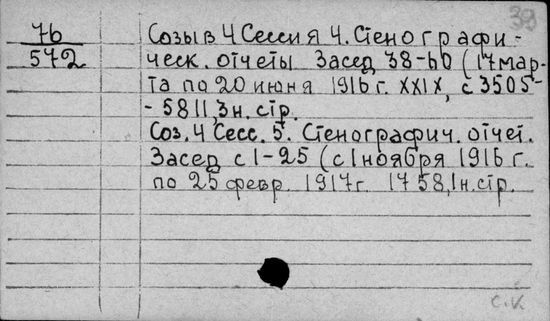 39
76
572
Созыв 4 Сессия 4. Стенографи-
ческ. отчеты Засед 38-60 (17 мар-
та по 20 июня 1916 г. XXIX, с 3505-
- 5811,3н. стр.
Соз. 4 Сесс. 5. Стенографич. отчет.
Засед с 1-25 (с 1 ноября 1916 г.
по 25 февр. 1917 г. 1758,1н. стр.
с.к.